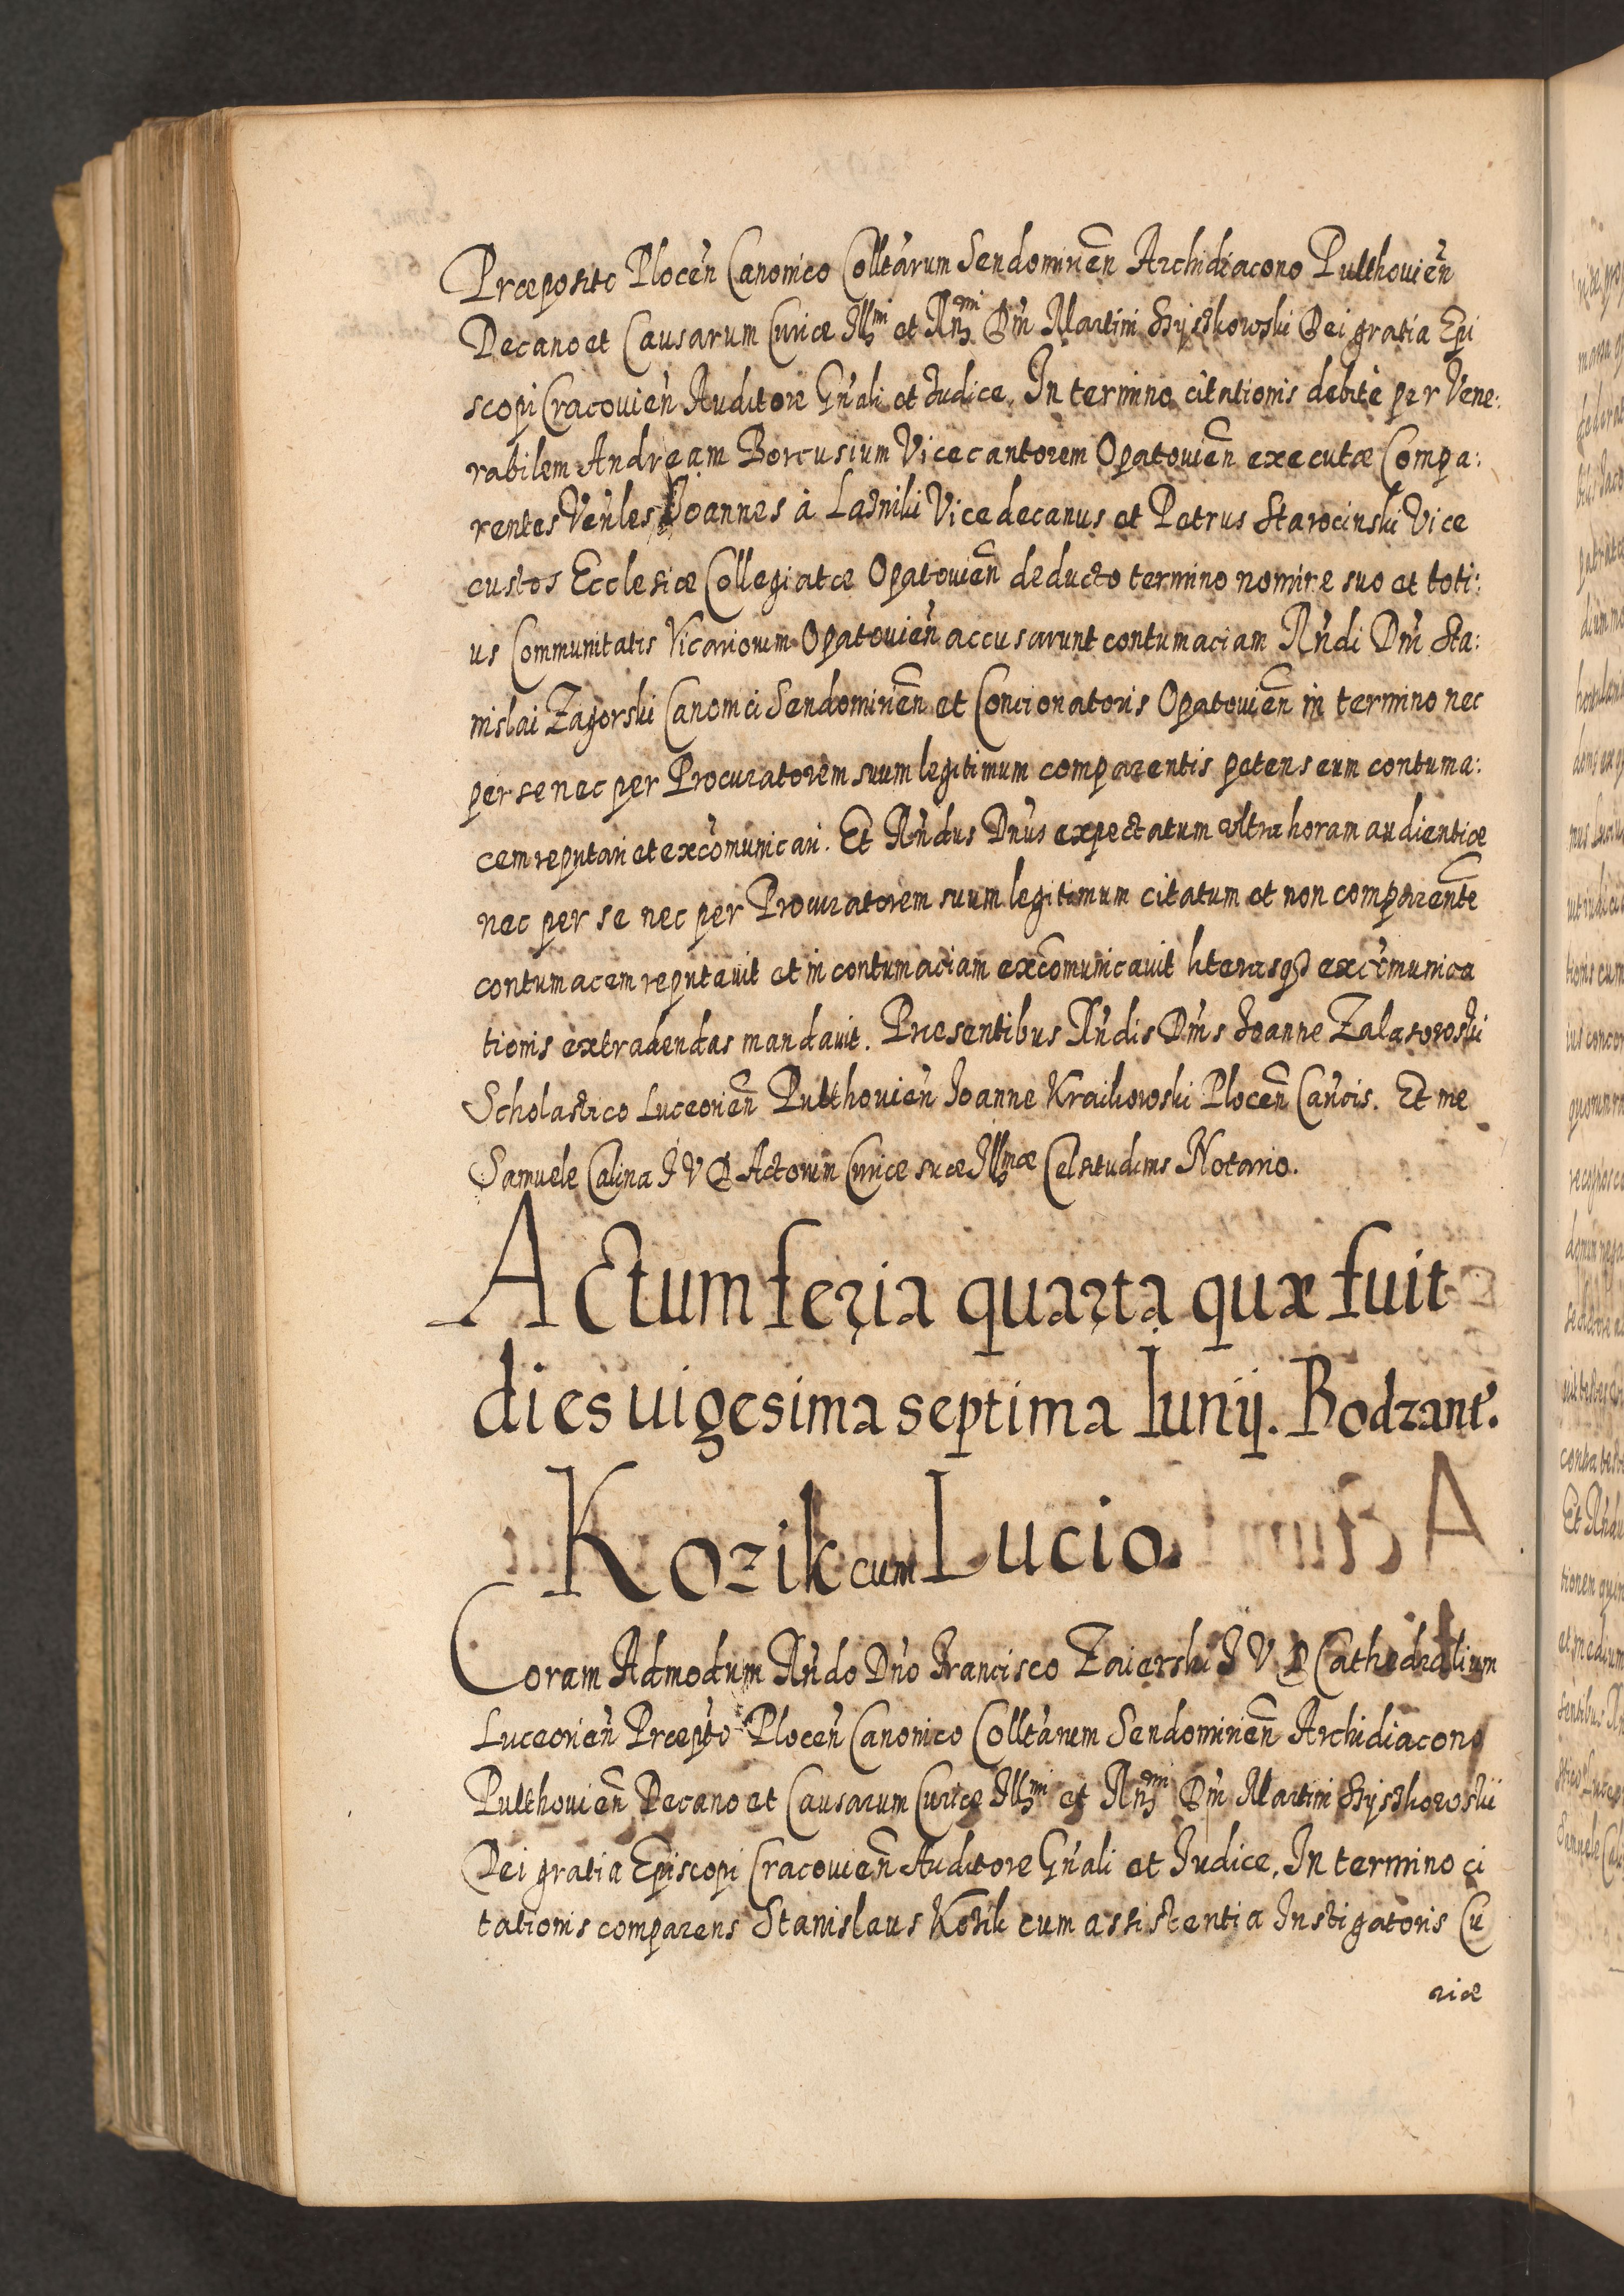 Præposito Plocen̄ Canonico Colltarum Sendomirien̄ Archidiacono Pulthouien̄
Decano et Causarum Curiæ Illmi et Rndmi Dni Martini Szyszkowski Dei gratia Epi
scopi Cracouien̄ Auditore Gn̄ali et Iudice. In termino citationis debitè per Vene:
rabilem Andream Borcusium Vicecantorem Opatouien̄ executæ Compa:
rentes Ven̄les Ioannes à Lażniki Vicedecanus et Petrus Starocinski Vice
custos Ecclesiæ Collegiatæ Opatouien̄ deducto termino nomine suo et toti:
us Communitatis Vicariorum Opatouien̄ accusarunt contumaciam Rn̄di Dn̄i Sta:
nislai Zagorski Canonici Sendomirien̄ et Concionatoris Opatouien̄ in termino nec
per se nec per Procuratorem suum legitimum comparentis petens eum contuma:
cem reputari et excōmunicari. Et Rn̄dus Dn̄us expectatum ultra horam audientiæ
nec per se nec per Procuratorem suum legitimum citatum et non comparente̅
contumacem reputauit et in contumaciam excōmunicauit literasq3 excōmunica
tionis extradendas mandauit. Præsentibus Rn̄dis Dn̄is Ioanne Zalasowski
Scholastico Luceorien̄ Pulthouien̄ Ioanne Kraikowski Plocen̄ Can̄cis. Et me
Samuele Calina I V D Actorum Curiæ suæ Illmæ Celsitudinis Notario.
Actum feria quarta quæ fuit
dies uigesima septima Iunij. Bodzant̄.
Kozik cum Lucio.
Coram Admodum Rn̄do Dn̄o Francisco Zaierski I V D Cathedralium
Luceorien̄ Præpto Plocen̄ Canonico Colltarum Sendomirien̄ Archidiacono
Pulthouien̄ Decano et Causarum Curiæ Illmi et Rndmi Dn̄i Martini Szyszkowskii
Dei gratia Episcopi Cracouien̄ Auditore Gn̄ali et Iudice. In termino ci
tationis comparens Stanislaus Kozik cum assistentia Instigatoris Cu
riæ